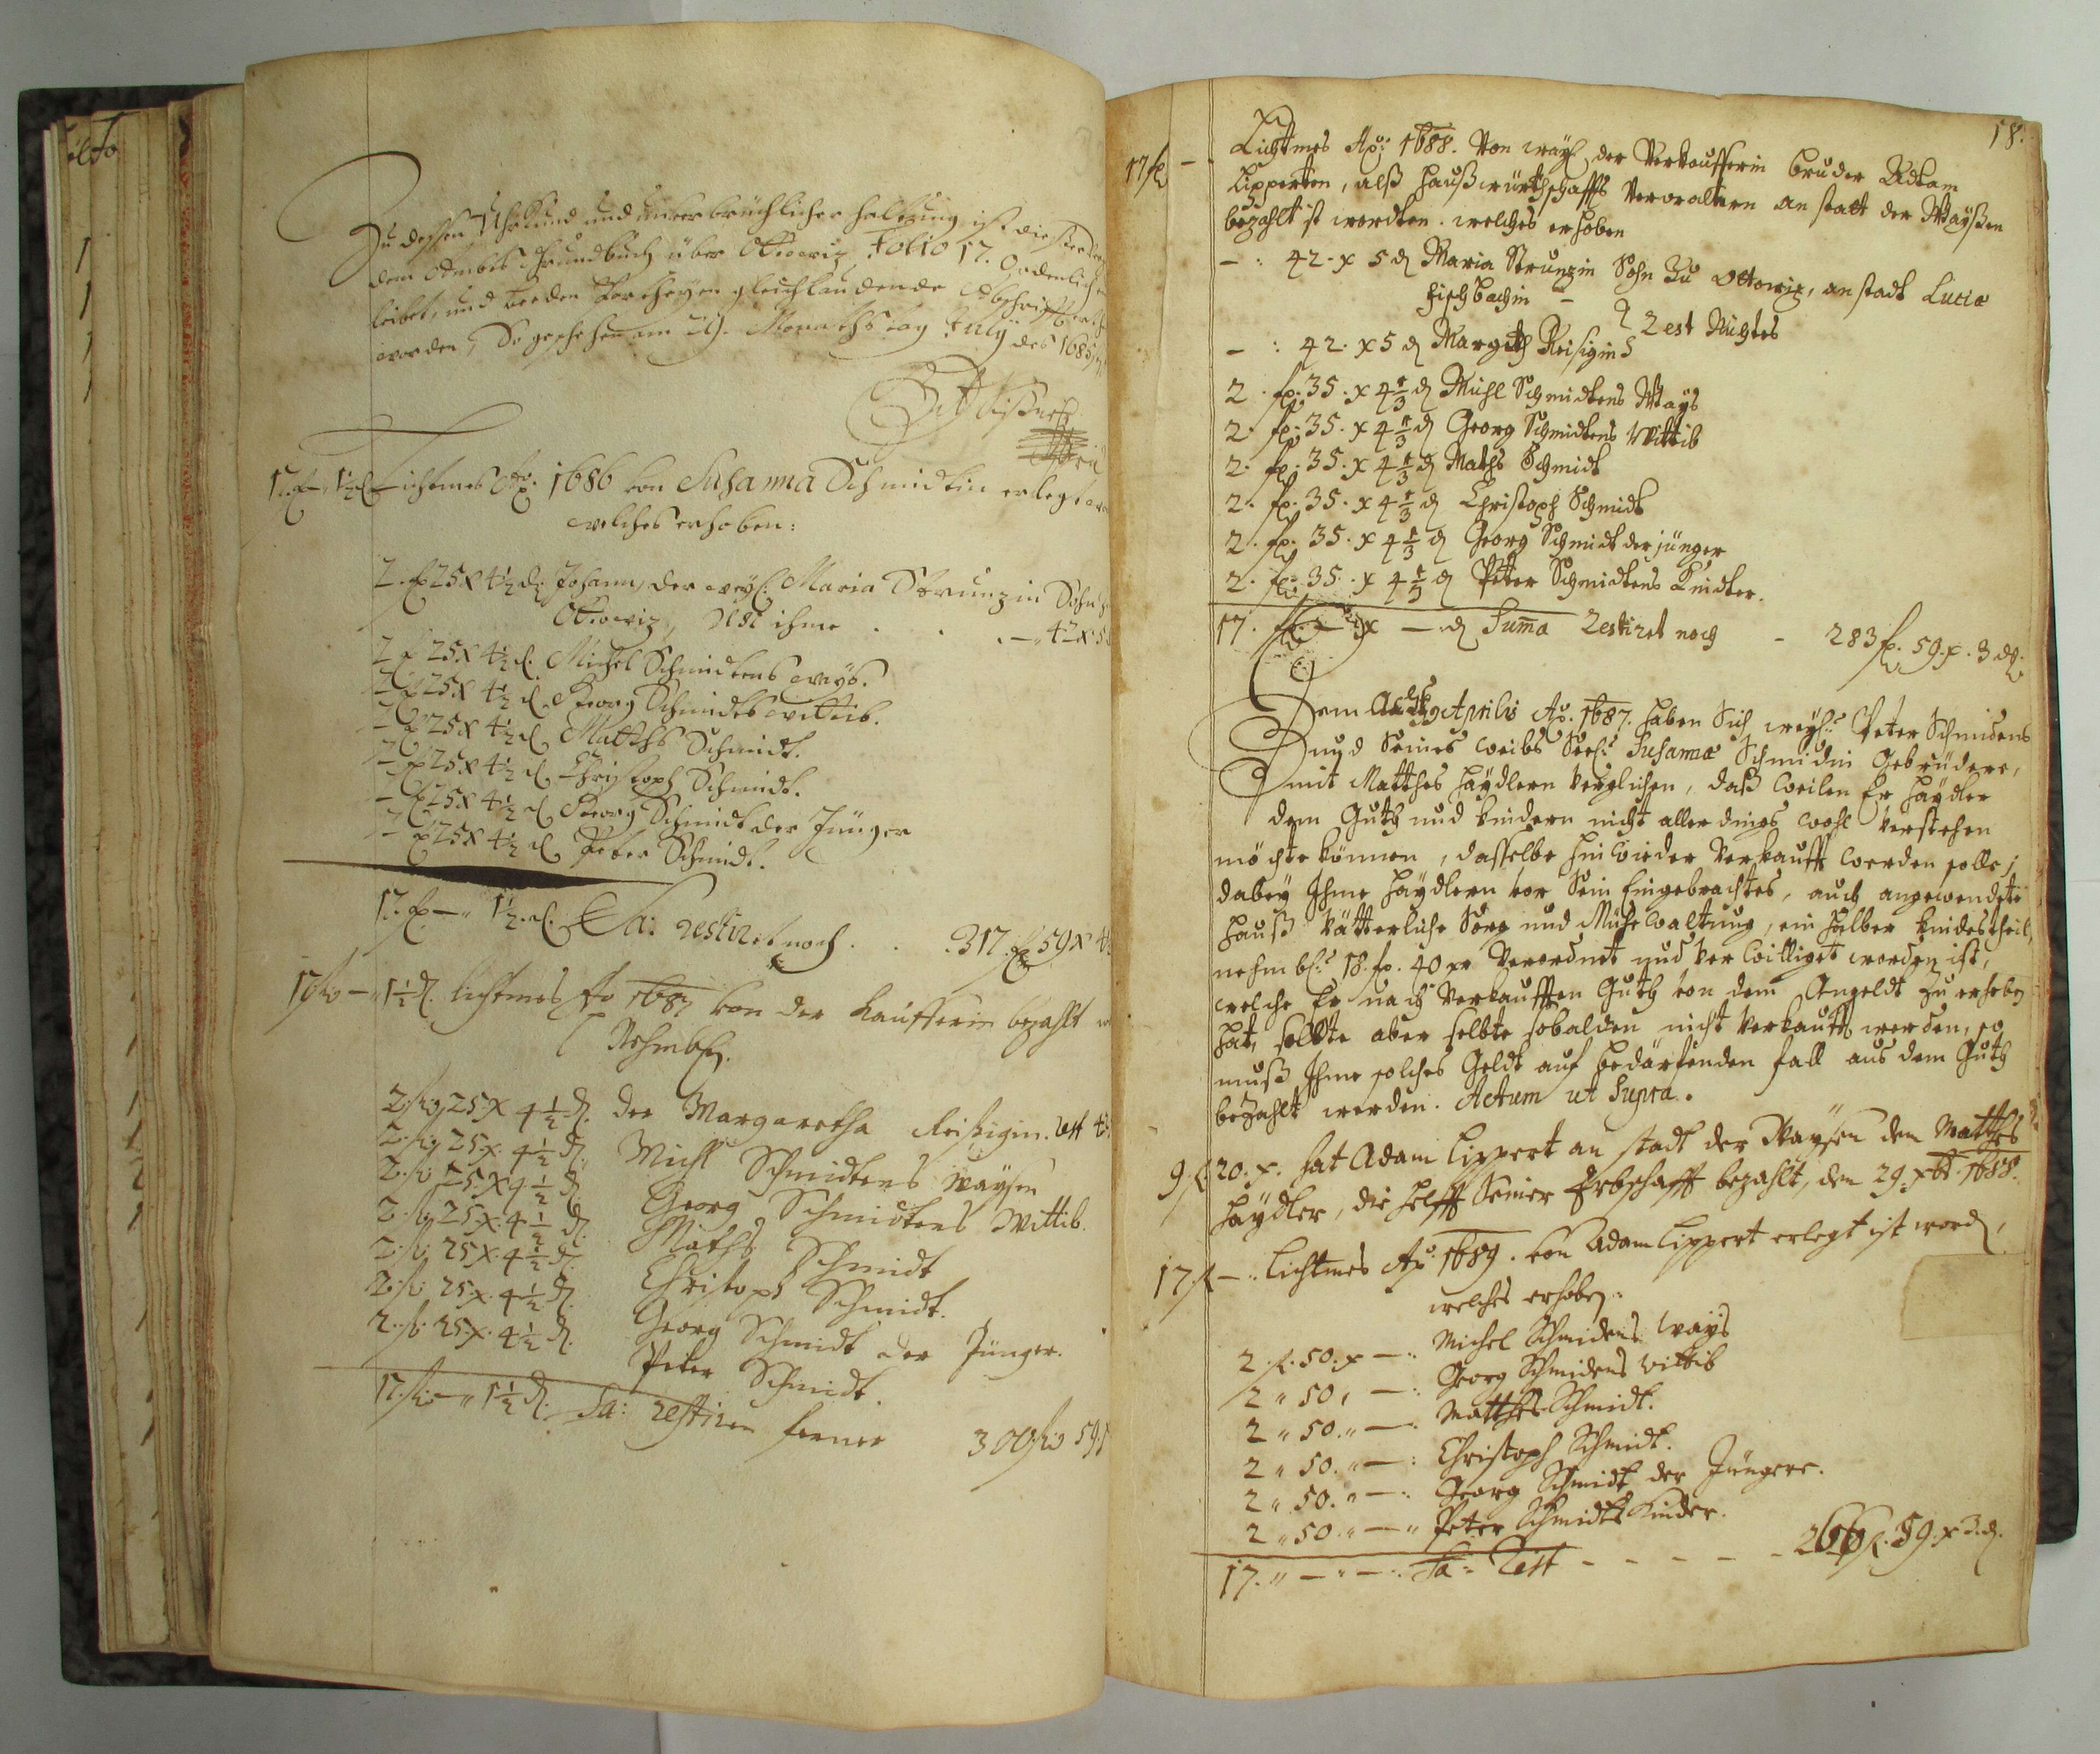 Zu dessen Uhrkund und unverbrüchlicher haltung ist dieser
dem Ambts Grundtbuch über Ottowiz Folio 17. Ordenlich
leibet, und beeden Partheyen gleichlaudende Abschrifft
worden, So geschehen am 29. Monathstag July des 1685
17 f — 1½ d Lichtmes Ao. 1686 von Susanna Schmidtin erlegt
welches erhoben:
2. f 25 x 4½ d. Johann, der weyl: Maria Strunzin Sohn
Ottowiz, Rest ihme . . . — 42 x 5
2 f 25 x 4½ d. Michel Schmidtens ways.
2 f 25 x 4½ d. Georg Schmidts wittib.
2 f 25 x 4½ d. Matths Schmidt.
2 f 25 x 4½ d. Christoph Schmidt.
2 f 25 x 4½ d. Georg Schmidt der Jünger
2 f 25 x 4½ d. Peter Schmidt.
17. f — " 1½ d. Sa: restiret noch . . 317. f 59 x 4
17 f — " 1½ d. Lichtmes Ao 1687 von der Kaufferin bezahlt
Nehmbl.
2. f 25. x 4½ d. der Margaretha Reisigin. Rest
2. f 25. x. 4½ d. Michl Schmidtens Waysen
2. f 25 x 4½ d. Georg Schmidtens Wittib.
2. f 25. x. 4½ d. Maths Schmidt
2. f 25 x. 4½ d. Christoph Schmidt.
2. f 25. x. 4½ d. Georg Schmidt der Jünger.
2. f. 25. x. 4½ d. Peter Schmidt
17. f — " 1½ d. Sa: restiren ferner 300 f 59
18.
17 f — Lichtmes Ao: 1688. Von weyl der Verkaufferin bruder Adam
Lipperten, alß haußwürthschaffts Verwaltern an statt der Wayßen
bezahlt ist worden. welches erhoben
— : 42. x 5 d Maria Strunzin Sohn Zu Ottowiz, an stadt Luciæ
Fischbachin —
Rest Nichtes
— : 42. x 5 d Margeth Reisigin
2. f. 35. x 4⅓ d Michl Schmidtens Ways
2. f. 35. x 4⅓ d Georg Schmidtens Wittib
2. f. 35. x 4⅓ d Maths Schmidt
2. f. 35. x 4⅓ d Christoph Schmidt
2. f. 35. x 4⅓ d Georg Schmidt der jünger
2. f. 35. x 4⅓ d Peter Schmidtens Kindter.
17. f — x — d Suma Restiret noch — 283 f. 59. x. 3 d.
Dem Aprilis Ao. 1687. haben Sich weyl: Peter Schmidens
und Seines weibs Seel: Susanna Schmidin Gebrüdere,
mit Matthes Haydlern verglichen, daß weilen Er Haydler
dem Guth und kindern nicht aller dings wohl verstehen
möchte können, dasselbe hinwieder Verkaufft werden solle,
dabey Ihme Haydlern vor Sein Eingebrachtes, auch angewendete
Hauß Vätterliche Sorg und Mühe waltung, ein halber kindestheil,
nehmbl: 18. f. 40 xr Verordnet und ver williget worden ist,
welche Er nach verkaufften Guth von dem Angeldt zu erheben
hat, sollte aber selbte sobalden nicht verkaufft werden, so
muß Ihme solches Geldt auf bedürfenden fall aus dem Guth
bezahlt werden. Actum ut Supra.
9 f. 20. x. hat Adam Lippert an stadt der Waysen dem Matthes
Haydler, die helfft Seiner Erbschafft bezahlt, den 29. xbr 1688.
17. f — : Lichtmes Ao: 1689. von Adam Lippert erlegt ist word,
welches erhoben:
2. f. 50. x — : Michel Schmidens ways
2 " 50, — : Georg Schmidens Wittib
2 " 50. " — : Matthes Schmidt.
2 " 50. " — : Christoph Schmidt.
2 " 50. " — : Georg Schmidt der Jüngere.
2 " 50. " — " Peter Schmidts Kinder.
17. " — " — : Sa: Rest — — — — — 266 f. 59. x 3. d.